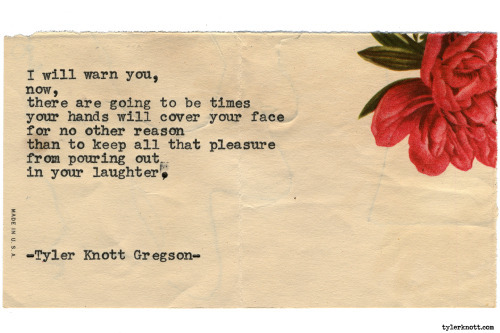 I will warn you,
now,
there are going to be times
your hands will cover your face
for no other reason
than to keep all that pleasure
from pouring out
in your laughter,
MADE IN U.S.A.
-Tyler Knott Gregson-
tylerknott.com